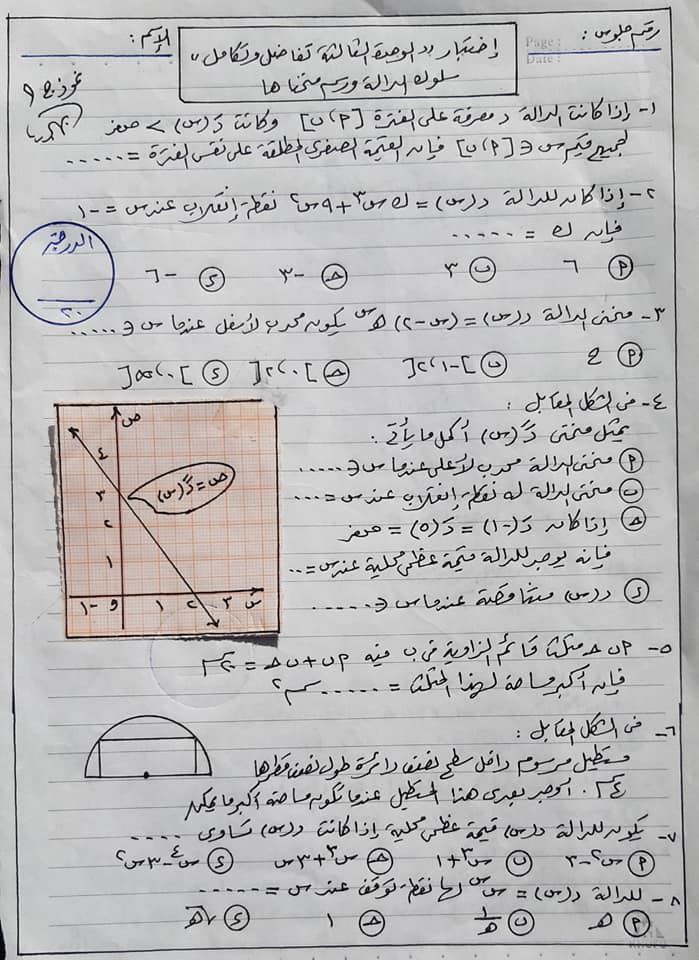 رقم جلوس :
Page :
Date :
الإسم :
إختبار " الوحدة الثالثة تفاضل وتكامل "
سلوك الدالة ورسم منحناها
نموذج ٩
١- إذا كانت الدالة د معرفة على الفترة [ ٢ ، ب ] وكانت دَ(س) > صفر
لجميع قيم س ∈ [ ٢ ، ب ] فإن القيمة الصغرى المطلقة على نفس الفترة = .....
٢- إذا كان للدالة د(س) = ك س٣ + ٩ س٢ نقطة إنقلاب عند س = -١
فإن ك = .....
الدرجة
٢٠
٢ ٦ ب ٣ حـ -٣ ء -٦
٣- منحنى الدالة د(س) = (س - ٢) هـ س يكون محدب لأسفل عندما س ∈ .....
٢ ع ب ] -١ ، ٢ [ حـ ] ٠ ، ٢ [ ء ] ٠ ، ∞ [
٤- فى الشكل المقابل :
يمثل منحنى دً(س) أكمل ما يأتى :
٢ منحنى الدالة محدب لأعلى عندما س ∈ .....
ب منحنى الدالة له نقطة إنقلاب عند س = ....
حـ إذا كان دَ(-١) = دَ(٥) = صفر
فإنه يوجد للدالة قيمة عظمى محلية عند س = ..
ء د(س) متناقصة عندما س ∈ .....
ص
٤
٣
٢
١
ص = دً(س)
-١ و ١ ٢ ٣ س
٥- ٢ ب حـ مثلث قائم الزاوية فى ب فيه ٢ب + ب حـ = ٢٠ سم
فإن أكبر مساحة لهذا المثلث = ..... سم٢
٦- فى الشكل المقابل :
مستطيل مرسوم داخل سطح نصف دائرة طول نصف قطرها
٤ سم . أوجد بعدى هذا المستطيل عندما تكون مساحته أكبر ما يمكن
٧- يكون للدالة د(س) قيمة عظمى محلية إذا كانت د(س) تساوى ....
٢ س٢ - ٣ ب س٣ + ١ حـ س٣ + ٣س ء س٤ - ٣س٢
٨- للدالة د(س) = س س لها نقطة توقف عند س = .....
٢ هـ ب ١/هـ حـ ١ ء √هـ